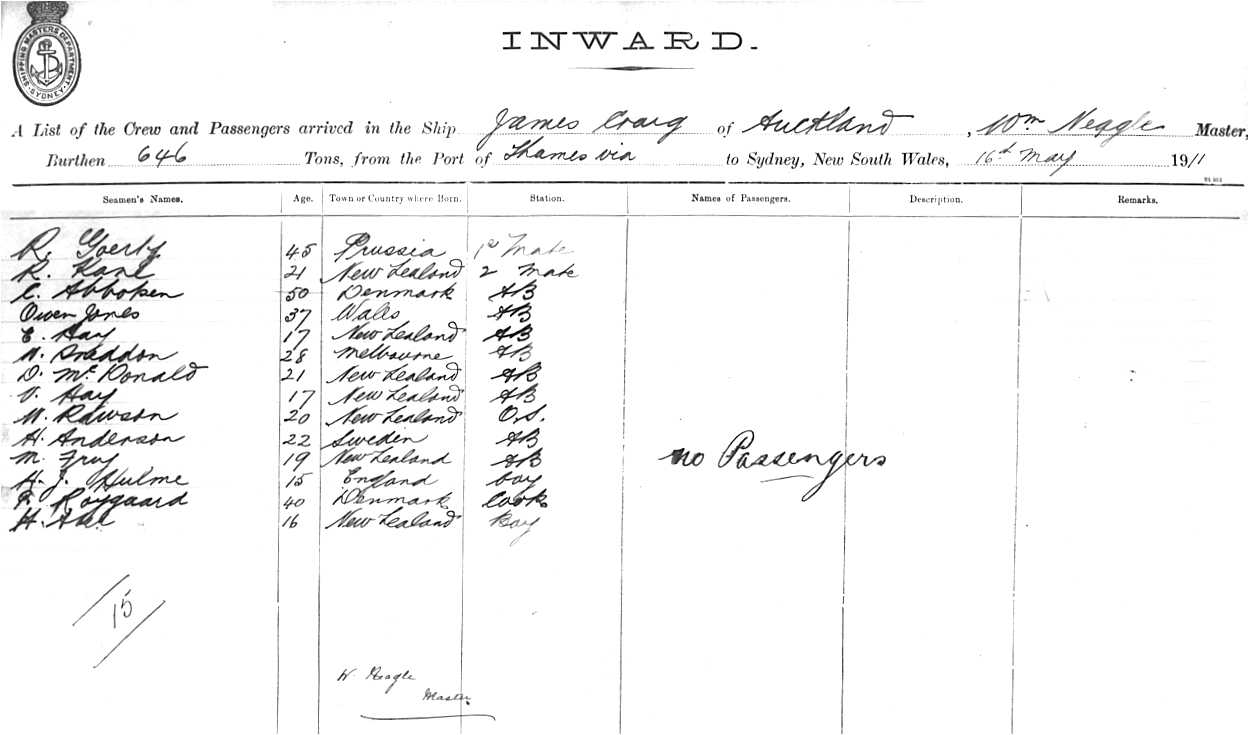 SHIPPING MASTERS DEPARTMENT
SYDNEY
INWARD.
A List of the Crew and Passengers arrived in the Ship James Craig of Auckland, Wm Neagle Master,
Burthen 646 Tons, from the Port of Thames via to Sydney, New South Wales, 16th May 1911
Seamen's Names. Age. Town or Country where Born. Station. Names of Passengers. Description. Remarks.
R. 45 Prussia 1st Mate
R. Kane 21 New Zealand 2 Mate
C. Abboken 50 Denmark AB
Owen Jones 37 Wales AB
E. Hay 17 New Zealand AB
W. Sneddon 28 Melbourne AB
D. McDonald 21 New Zealand AB
V. Hay 17 New Zealand AB
W. Rawson 20 New Zealand O.S.
H. Anderson 22 Sweden AB
M. Fry 19 New Zealand AB
no Passengers
H. J. Hulme 15 England boy
F. Roygaard 40 Denmark Cook
H. Abel 16 New Zealand Boy
15
W Neagle
Master